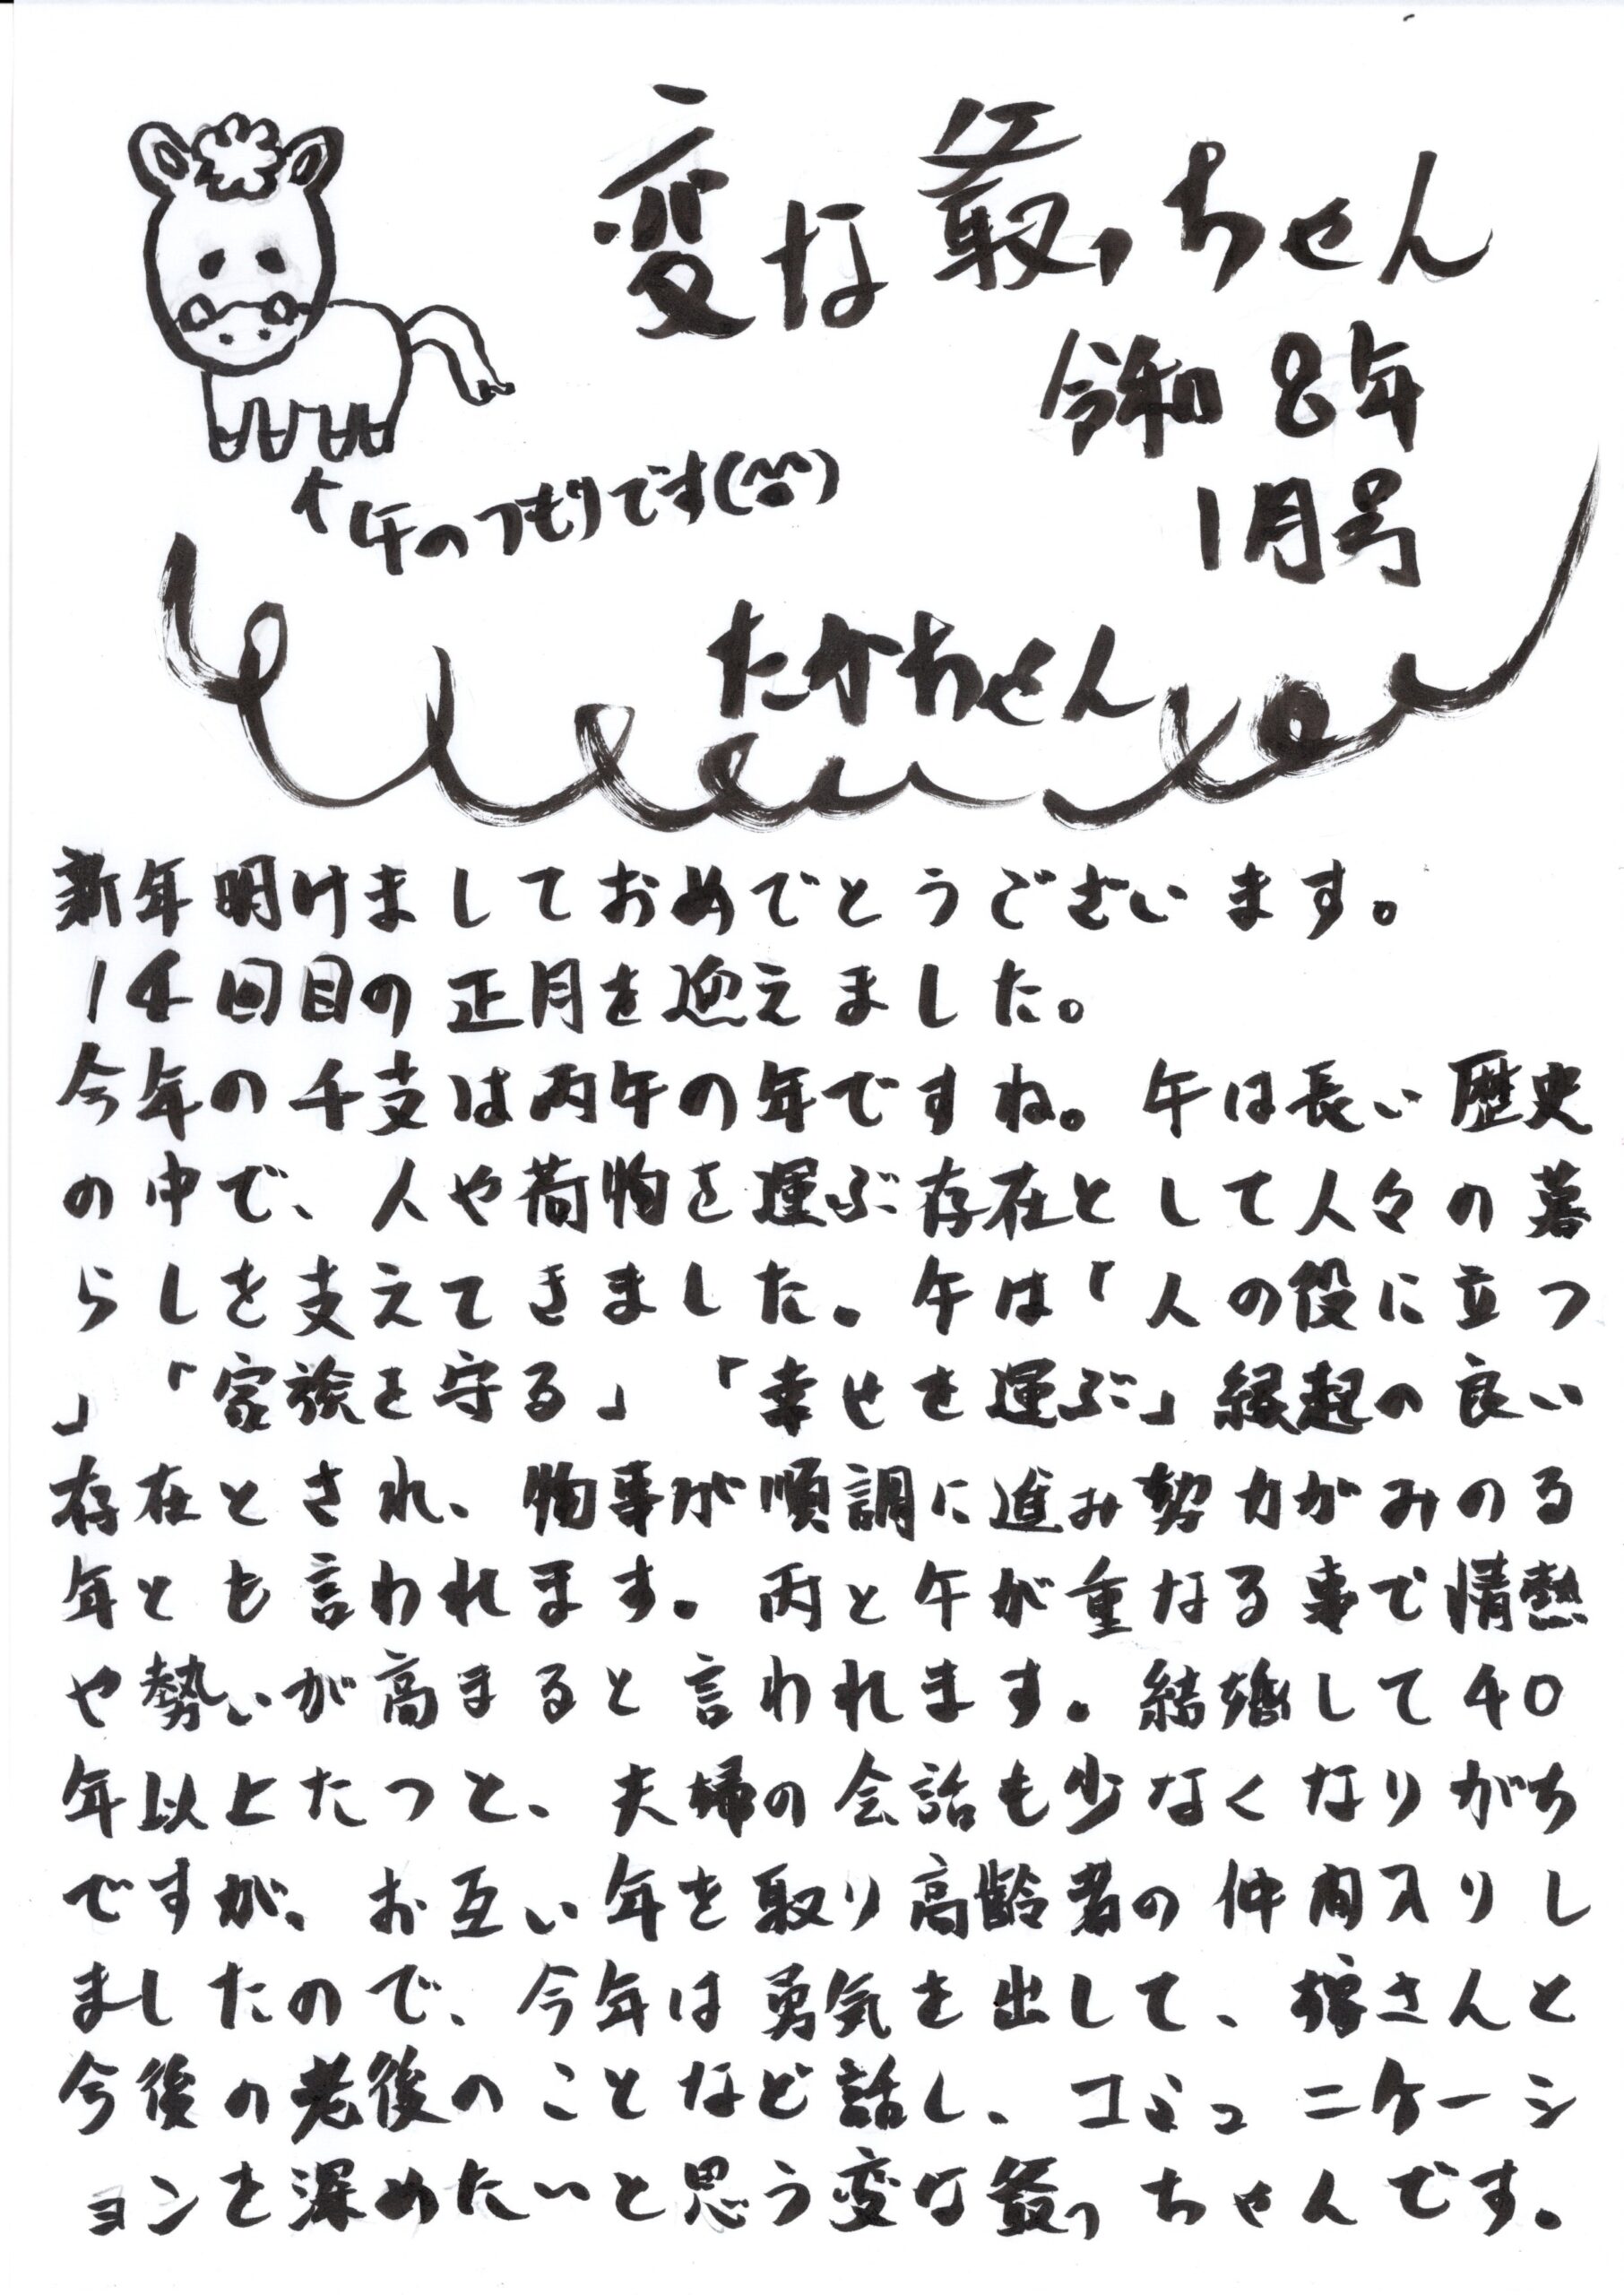 変な最っちゃん
令和8年
1月号
↑午のつもりです(^^)
たかちゃん
新年明けましておめでとうございます。
14回目の正月を迎えました。
今年の干支は丙午の年ですね。午は長い歴史
の中で、人や荷物を運ぶ存在として人々の暮
らしを支えてきました。午は「人の役に立つ
」「家族を守る」「幸せを運ぶ」縁起の良い
存在とされ、物事が順調に進み努力がみのる
年とも言われます。丙と午が重なる事で情熱
や勢いが高まると言われます。結婚して40
年以上たつと、夫婦の会話も少なくなりがち
ですが、お互い年を取り高齢者の仲間入りし
ましたので、今年は勇気を出して、嫁さんと
今後の老後のことなど話し、コミュニケーシ
ョンを深めたいと思う変な最っちゃんです。